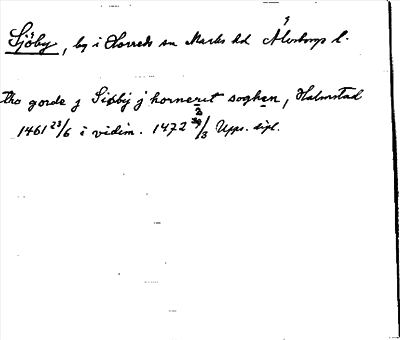 Sjöby, by i Horreds sn Marks hd Älvsborgs l.
tho gorde j Siöbÿ j hornerit soghen, Halmstad
1461 23/6 i vidim. 1472 30/3 Upps. dipl.